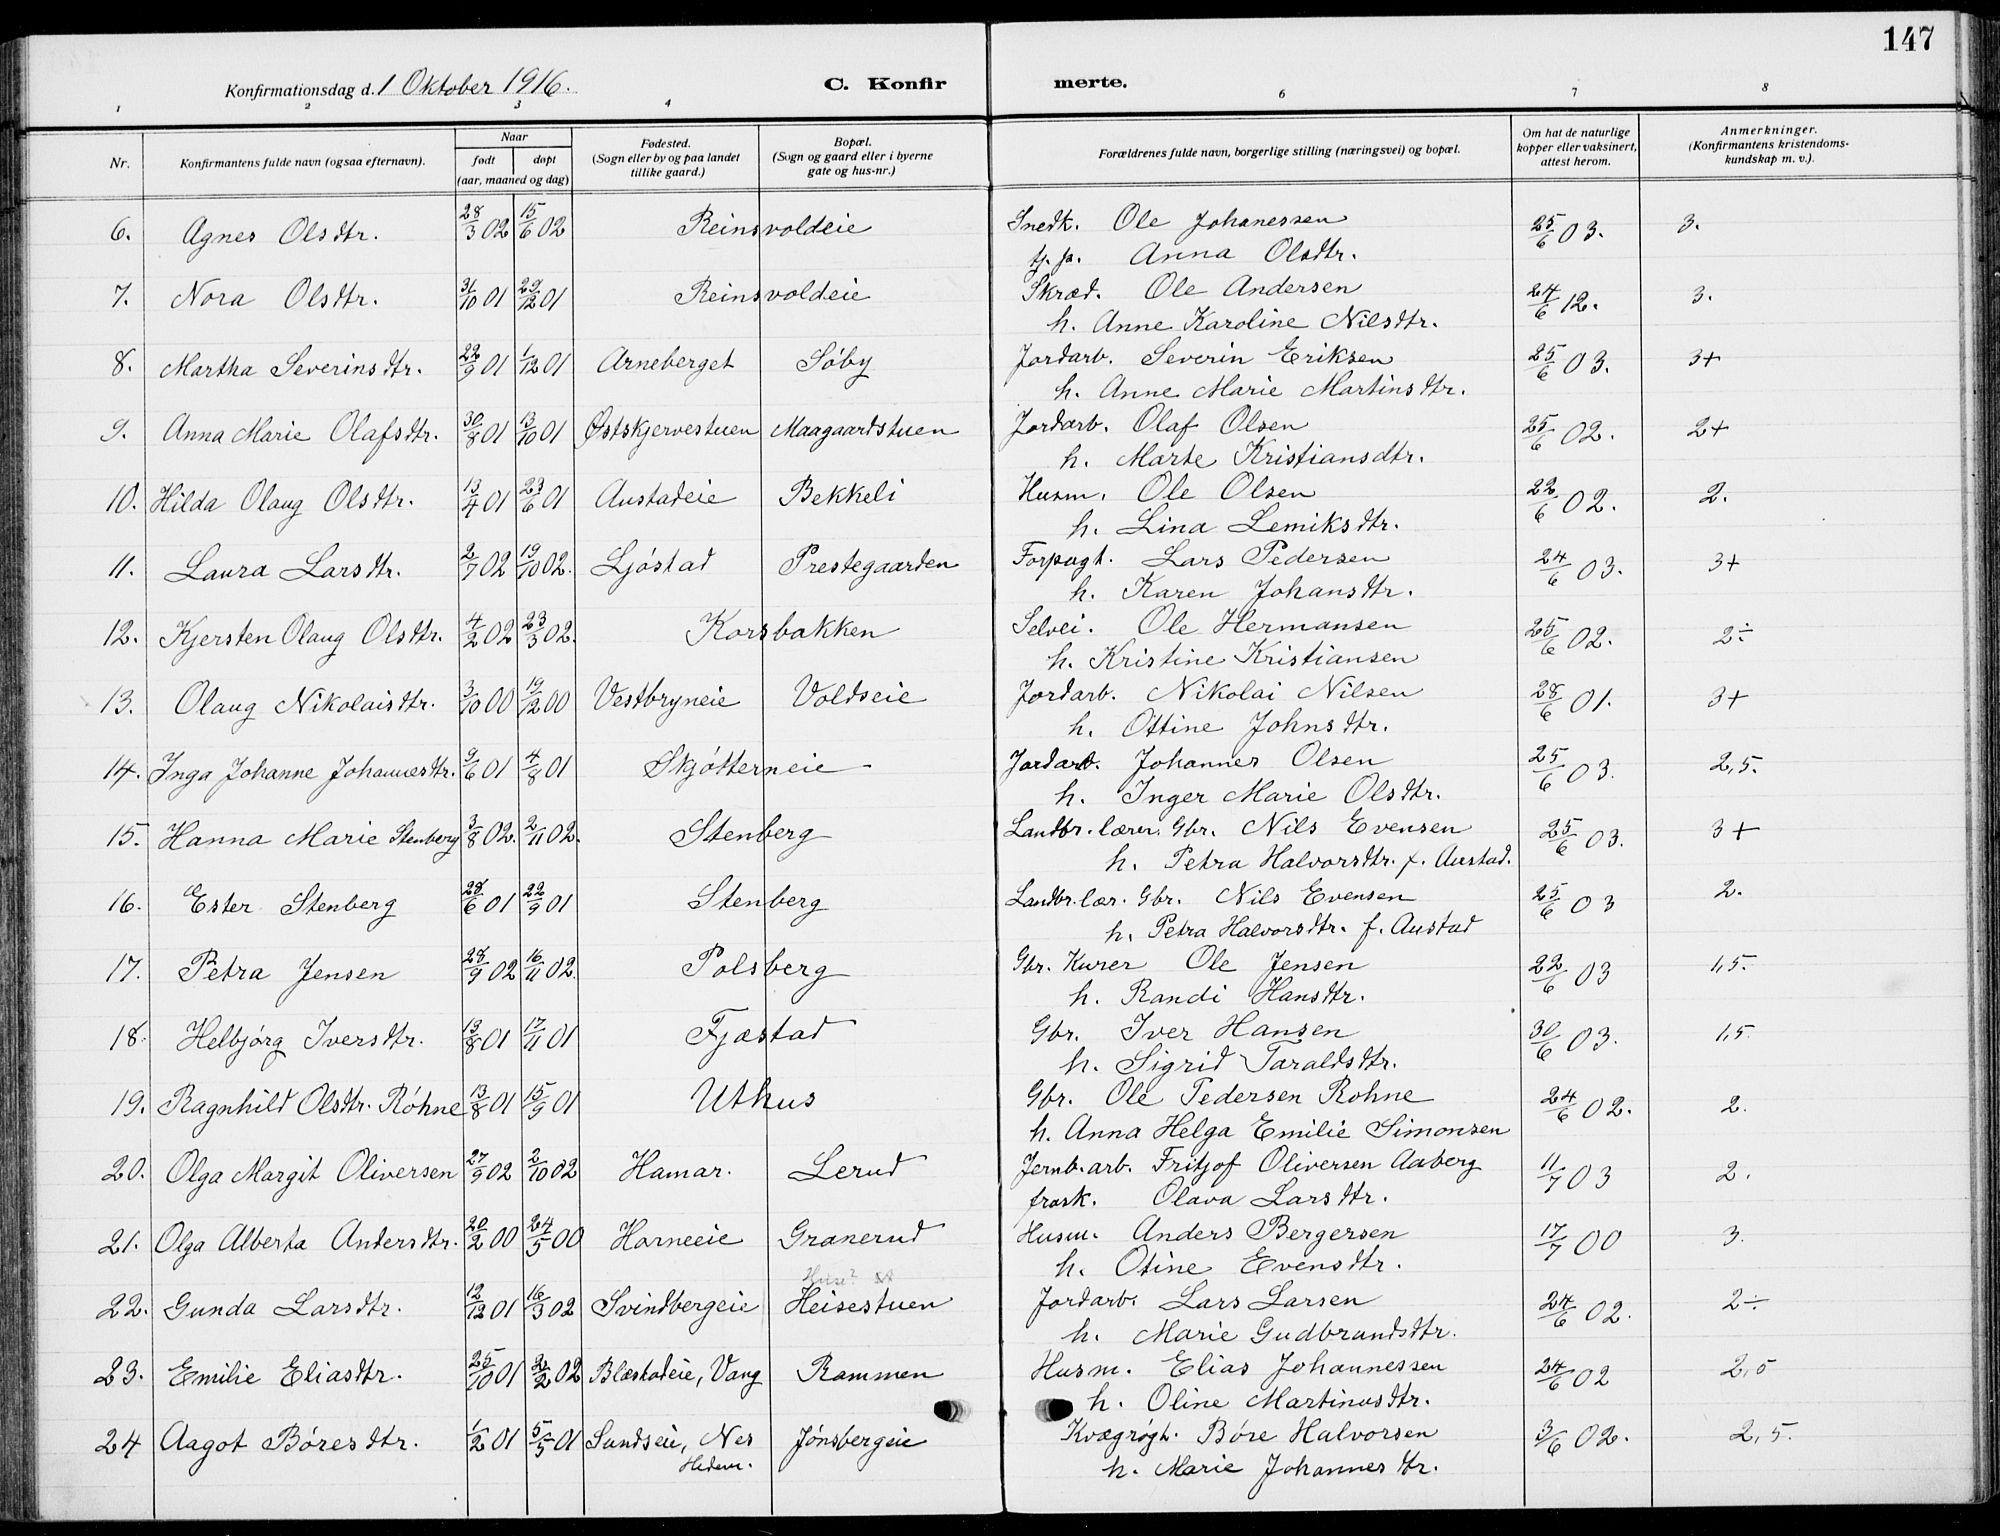 147
Konfirmationsdag d. 1 Oktober 1916. C. Konfirmerte.
1 2 3 4 6 7 8
Nr. Konfirmantens fulde navn (ogsaa efternavn). Naar født døpt (aar, maaned og dag) Fødested. (Sogn eller by og paa landet tillike gaard.) Bopæl. (Sogn og gaard eller i byerne gate og hus-nr.) Forældrenes fulde navn, borgerlige stilling (næringsvei) og bopæl. Om hat de naturlige kopper eller vaksinert, attest herom. Anmerkninger. (Konfirmantens kristendomskundskap m. v.).
6. Agnes Olsdtr. 28/3 02 15/6 02 Reinsvoldeie Snedk. Ole Johanessen 25/6 03. 3.
tj. p. Anna Olsdtr.
7. Nora Olsdtr. 31/10 01 29/12 01 Reinsvoldeie Skræd. Ole Andersen 24/6 12. 3.
h. Anne Karoline Nilsdtr.
8. Martha Severinsdtr. 22/9 01 1/12 01 Arneberget Søby Jordarb. Severin Eriksen 25/6 03. 3+
h. Anne Marie Martinsdtr.
9. Anna Marie Olafsdtr. 30/8 01 13/10 01 Østskjervestuen Maagaardstuen Jordarb. Olaf Olsen 25/6 02. 2+
h. Marte Kristiansdtr.
10. Hilda Olaug Olsdtr. 13/4 01 23/6 01 Austadeie Bekkeli Husm. Ole Olsen 22/6 02. 2.
h. Lina Lemiksdtr.
11. Laura Larsdtr. 2/7 02 19/10 02. Ljøstad Prestegaarden Forpagt. Lars Pedersen 24/6 03. 3+
h. Karen Johansdtr.
12. Kjersten Olaug Olsdtr. 4/2 02 23/3 02. Korsbakken Selvei. Ole Hermansen 25/6 02. 2÷
h. Kristine Kristiansen
13. Olaug Nikolaisdtr. 3/10 00 19/12 00 Vestbryneie Voldseie Jordarb. Nikolai Nilsen 28/6 01. 3+
h. Ottine Johnsdtr.
14. Inga Johanne Johannesdtr. 9/6 01 4/8 01 Skjøtterneie Jordarb. Johannes Olsen 25/6 03. 2,5.
h. Inger Marie Olsdtr.
15. Hanna Marie Stenberg 3/8 02. 2/11 02. Stenberg Landbr. lærer. Gbr. Nils Evensen 25/6 03. 3+
h. Petra Halvorsdtr. f. Austad.
16. Ester Stenberg 28/6 01 22/9 01 Stenberg Landbr. lær. Gbr. Nils Evensen 25/6 03 2.
h. Petra Halvorsdtr. f. Austad
17. Petra Jensen 28/9 02 16/11 02. Polsberg Gbr. Kurer Ole Jensen 22/6 03 1,5.
h. Randi Hansdtr.
18. Helbjørg Iversdtr. 13/8 01 17/11 01 Fjæstad Gbr. Iver Hansen 30/6 03. 1,5
h. Sigrid Taraldsdtr.
19. Ragnhild Olsdtr. Røhne 13/8 01 15/9 01 Uthus Gbr. Ole Pedersen Rohne 24/6 02. 2.
h. Anna Helga Emilie Simonsen
20. Olga Margit Oliversen 27/9 02 2/10 02 Hamar. Lerud Jernb. arb. Fritjof Oliversen Aaberg 11/7 03 2.
frask. Olava Larsdtr.
21. Olga Alberta Andersdtr. 20/2 00 24/5 00 Horneeie Granerud Husm. Anders Bergersen 17/7 00 3.
h. Otine Evensdtr.
22. Gunda Larsdtr. 12/12 01 16/3 02 Svindbergeie Heisestuen Jordarb. Lars Larsen 24/6 02. 2÷
h. Marie Gudbrandsdtr.
23. Emilie Eliasdtr. 25/10 01 2/2 02 Blæstadeie, Vang Rammen Husm. Elias Johannessen 24/6 02 2,5
h. Oline Martinusdtr.
24 Aagot Børesdtr. 1/2 01 5/5 01 Sundseie, Nes Hedem. Jønsbergeie Kvægrøgt. Børe Halvorsen 3/6 02. 2,5.
h. Marie Johannesdtr.